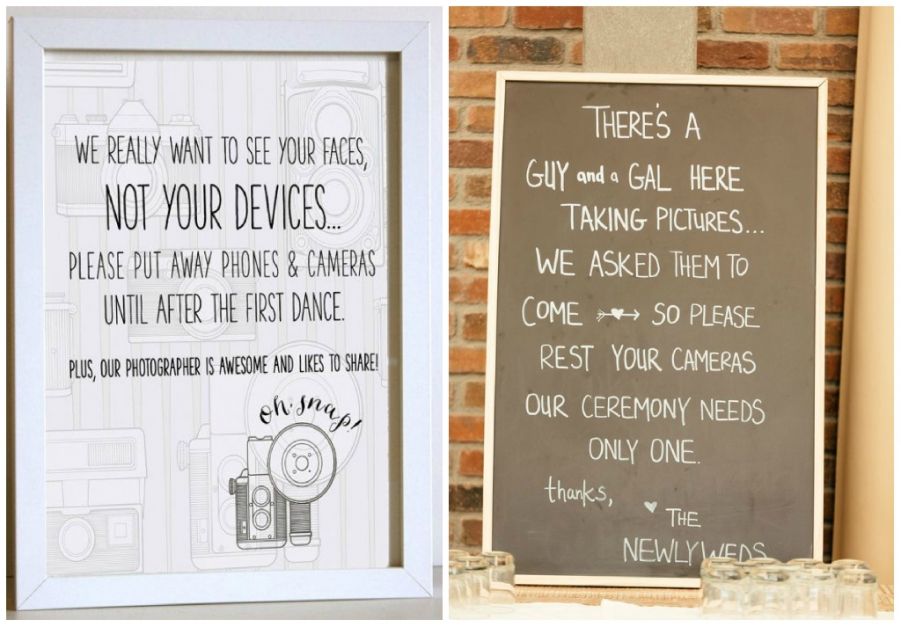 WE REALLY WANT TO SEE YOUR FACES,
NOT YOUR DEVICES...
PLEASE PUT AWAY PHONES & CAMERAS
UNTIL AFTER THE FIRST DANCE.
PLUS, OUR PHOTOGRAPHER IS AWESOME AND LIKES TO SHARE!
oh snap!
THERE'S A
GUY and a GAL HERE
TAKING PICTURES...
WE ASKED THEM TO
COME SO PLEASE
REST YOUR CAMERAS
OUR CEREMONY NEEDS
ONLY ONE.
thanks,
THE
NEWLYWEDS